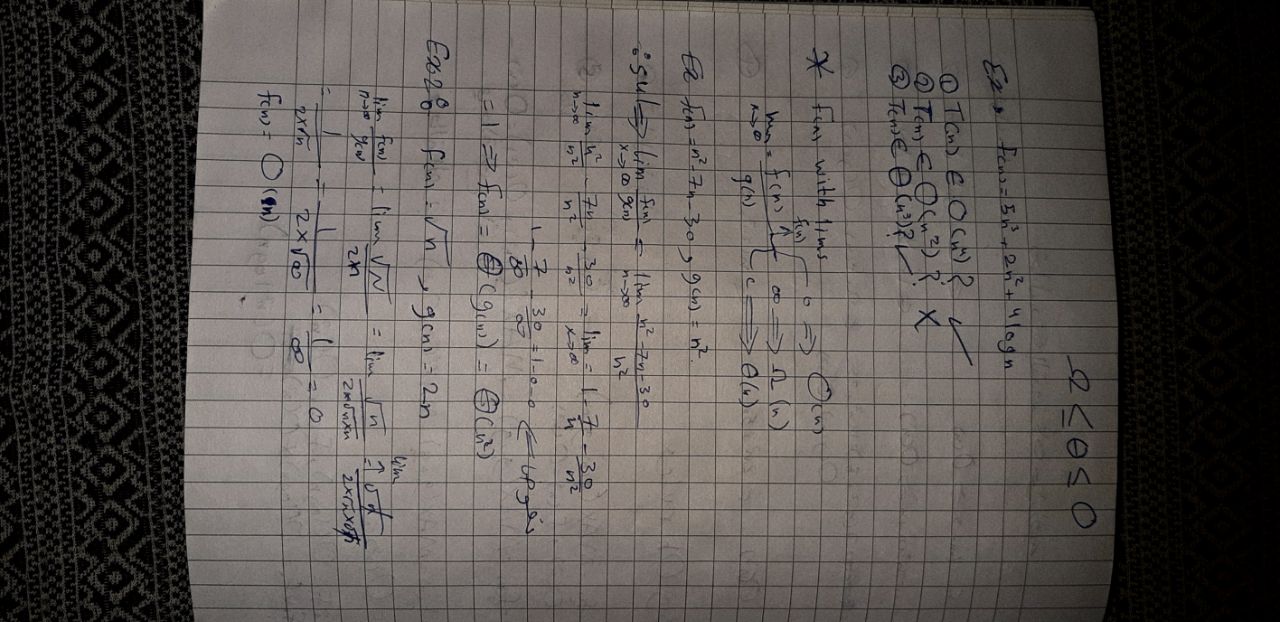 Ω ≤ θ ≤ O
Ex. f(n) = 5n³ + 2n² + 4 log n
① T(n) ∈ O(n⁴)? ✓
② T(n) ∈ O(n²)? X
③ T(n) ∈ θ(n³)? ✓
* f(n) with lims
lim n→∞ = f(n)/g(n)
f(n) ↑
0 ⇒ O(n)
∞ ⇒ Ω(n)
c ⇒ θ(n)
Ex f(n) = n² - 7n - 30, g(n) = n²
الحل: ⇒ lim x→∞ f(n)/g(n) = lim n→∞ (n² - 7n - 30)/n²
lim n→∞ n²/n² - 7n/n² - 30/n² = lim x→∞ = 1 - 7/n - 30/n²
1 - 7/∞ - 30/∞ = 1 - 0 - 0
= 1 ⇒ f(n) = θ(g(n)) = θ(n²)
Ex2: f(n) = √n, g(n) = 2n
lim n→∞ f(n)/g(n) = lim √n/2n = lim √n/(2×√n×√n) = lim √n/(2×√n×√n)
= 1/(2×√n) = 1/(2×√∞) = 1/∞ = 0
f(n) = O(n)